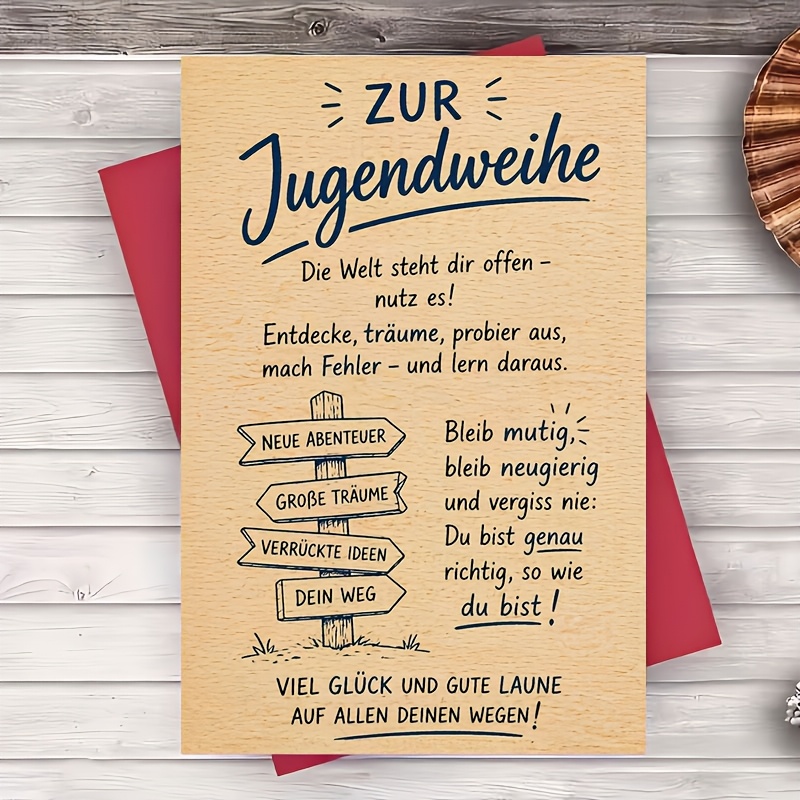 ZUR
Jugendweihe
Die Welt steht dir offen –
nutz es!
Entdecke, träume, probier aus,
mach Fehler – und lern daraus.
NEUE ABENTEUER
GROßE TRÄUME
VERRÜCKTE IDEEN
DEIN WEG
Bleib mutig,
bleib neugierig
und vergiss nie:
Du bist genau
richtig, so wie
du bist!
VIEL GLÜCK UND GUTE LAUNE
AUF ALLEN DEINEN WEGEN!